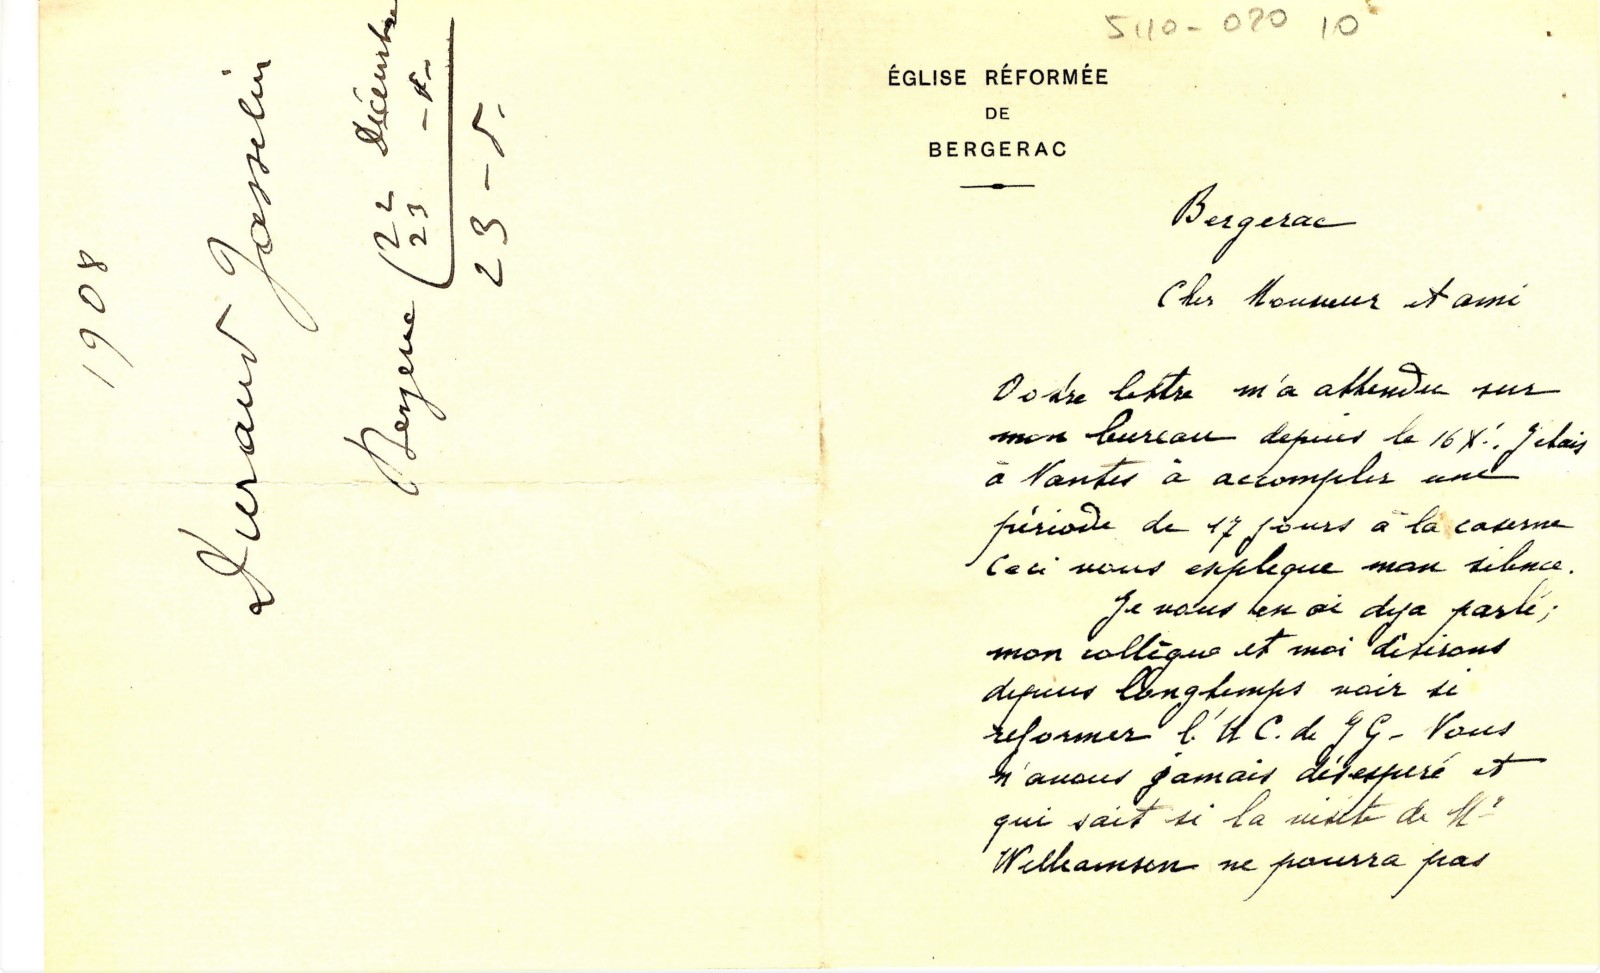 1908
Durand Gosselin
Bergerac (22 Décembre
23 - 8 -
23 - 8.
5110 - 020 10
ÉGLISE RÉFORMÉE
DE
BERGERAC
Bergerac
Cher Monsieur et ami
Votre lettre m'a attendu sur
mon bureau depuis le 16 Xᵉ. J'étais
à Nantes à accomplir une
période de 17 jours à la caserne
Ceci vous explique mon silence.
Je vous en ai déja parlé;
mon collègue et moi désirons
depuis longtemps voir se
reformer l'U C. de J G - Nous
n'avons jamais désespéré et
qui sait si la visite de Mʳ
Williamson ne pourra pas